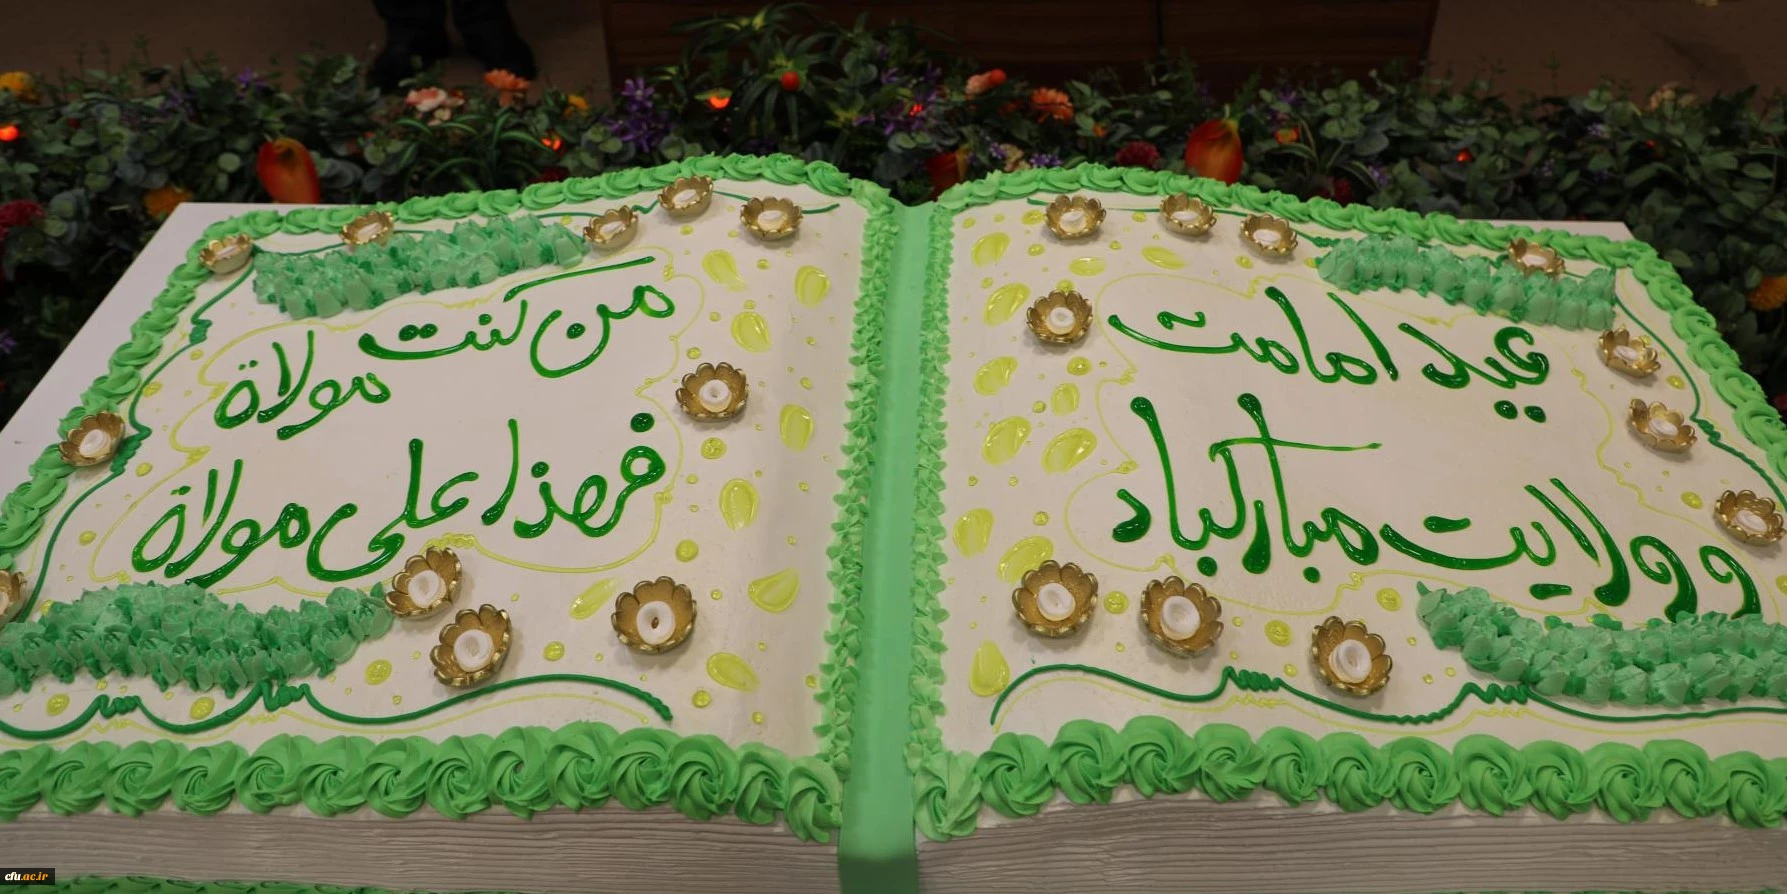 عید امامت
و ولایت مبارکباد
من کنت مولاة
فهذا علی مولاة
cfu.ac.ir